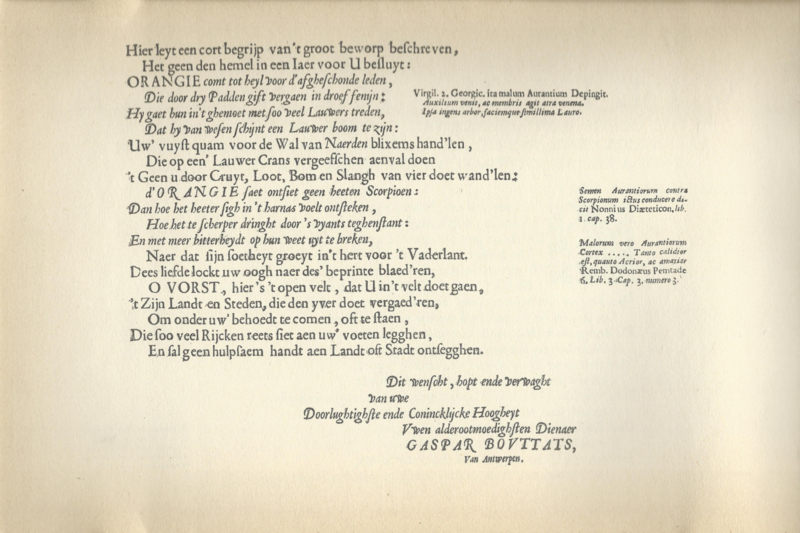 Hier leyt een cort begrijp van't groot beworp beſchreven,
Het geen den hemel in een Iaer voor U beſluyt:
ORANGIE comt tot heyl voor d'afgheſchonde leden,
Die door dry Padden gift vergaen in droef fenijn;
Virgil. 2. Georgic. ita malum Aurantium Depingit.
Auxilium venit, ac membris agit atra venena.
Ipſa ingens arbor, faciemque ſimillima Lauro.
Hy gaet hun in't ghemoet met ſoo veel Lauwers treden,
Dat hy van weſen ſchijnt een Lauwer boom te zijn:
Uw' vuyſt quam voor de Wal van Naerden blixems hand'len,
Die op een' Lauwer Crans vergeefſchen aenval doen
't Geen u door Cruyt, Loot, Bom en Slangh van vier doet wand'len;
d'ORANGIE ſaet ontſiet geen heeten Scorpioen:
Semen Aurantiorum contra
Scorpionum ictus conducere di-
cit Nonnius Diæteticon, lib.
1. cap. 38.
Dan hoe het heeter ſigh in't harnas voelt ontſteken,
Hoe het te ſcherper dringht door's vyants teghenſtant:
En met meer bitterheydt op hun weet uyt te breken,
Naer dat ſijn ſoetheyt groeyt in't hert voor 't Vaderlant.
Malorum vero Aurantiorum
Cortex .... Tanto calidior
eſt, quanto Acrior, ac amarior
Remb. Dodonæus Pemtade
6. Lib. 3. Cap. 3. numero 3.
Dees liefde lockt uw oogh naer des' beprinte blaed'ren,
O VORST, hier's 't open velt, dat U in't velt doet gaen,
't Zijn Landt en Steden, die den yver doet vergaed'ren,
Om onder uw' behoedt te comen, oft te ſtaen,
Die ſoo veel Rijcken reets ſiet aen uw' voeten legghen,
En ſal geen hulpſaem handt aen Landt oft Stadt ontſegghen.
Dit wenſcht, hopt ende verwaght
van uwe
Doorlughtighſte ende Conincklijcke Hoogheyt
Vwen alderootmoedighſten Dienaer
GASPAR BOVTTATS,
Van Antwerpen.